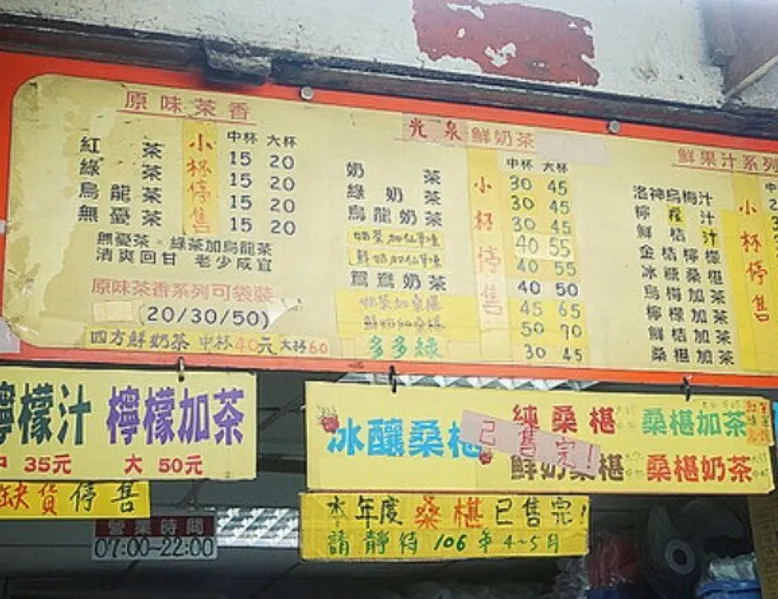 原味茶香
小杯停售
中杯 大杯
紅茶 15 20
綠茶 15 20
烏龍茶 15 20
無憂茶 15 20
無憂茶・綠茶加烏龍茶
清爽回甘 老少咸宜
原味茶香系列可袋裝
(20/30/50)
四方鮮奶茶 中杯40元 大杯60
光泉鮮奶茶
小杯停售
中杯 大杯
奶茶 30 45
綠奶茶 30 45
烏龍奶茶 30 45
奶茶加仙草凍 40 55
鮮奶加仙草凍 40 55
鴛鴦奶茶 40 50
奶茶加桑椹 45 65
鮮奶加桑椹 50 70
多多綠 30 45
鮮果汁系列
小杯停售
洛神烏梅汁
檸檬汁
鮮桔汁
金桔檸檬
冰糖桑椹
烏梅加茶
檸檬加茶
鮮桔加茶
桑椹加茶
檸檬汁 檸檬加茶
中 35元 大 50元
缺貨停售
營業時間
07:00-22:00
冰釀桑椹
已售完!
純桑椹 桑椹加茶
鮮奶桑椹 桑椹奶茶
本年度桑椹已售完!
請靜待106年4~5月